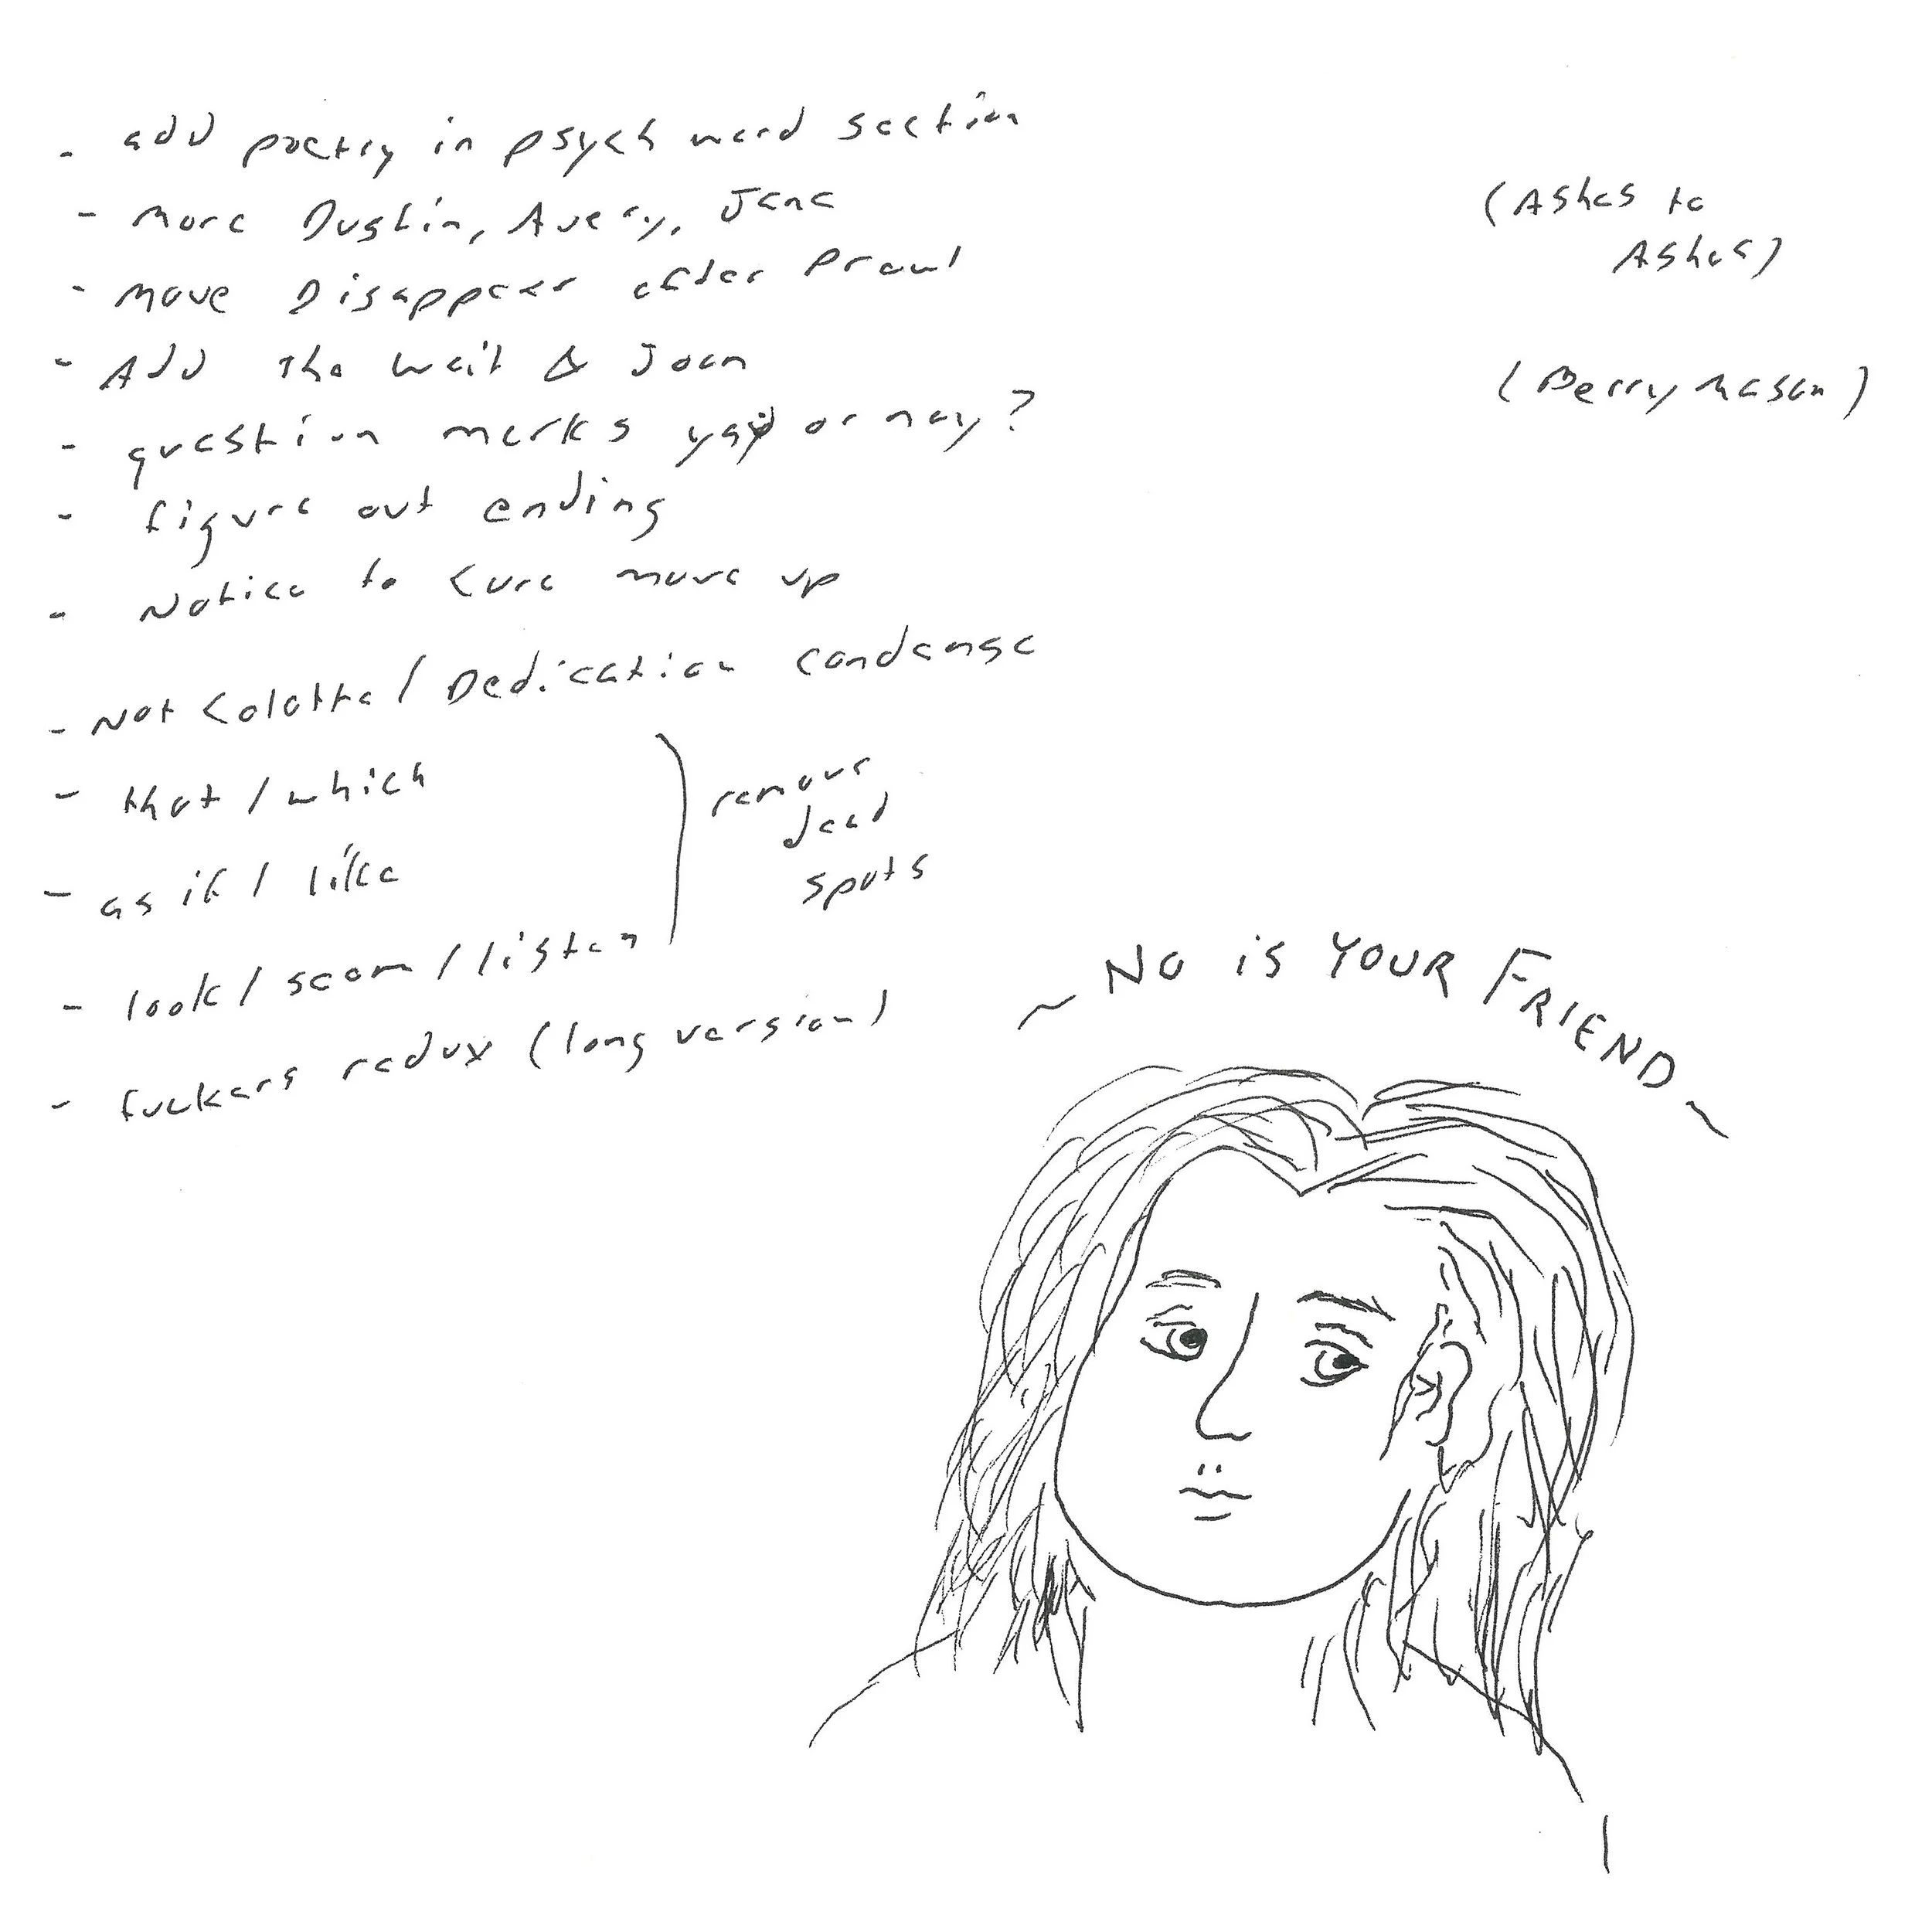 - add poetry in psych ward section
- more Dustin, Avery, Jane
- move Disappear after Prowl
- Add The Wait & Joan
- question marks yay or nay?
- figure out ending
- Notice to Cure move up
- Not Colette / Dedication condense
- that / which
- as if / like
- look / seem / listen
remove
dead
spots
- fuckers redux (long version)
(Ashes to
Ashes)
(Berry Mason)
~ NO is YOUR FRIEND ~